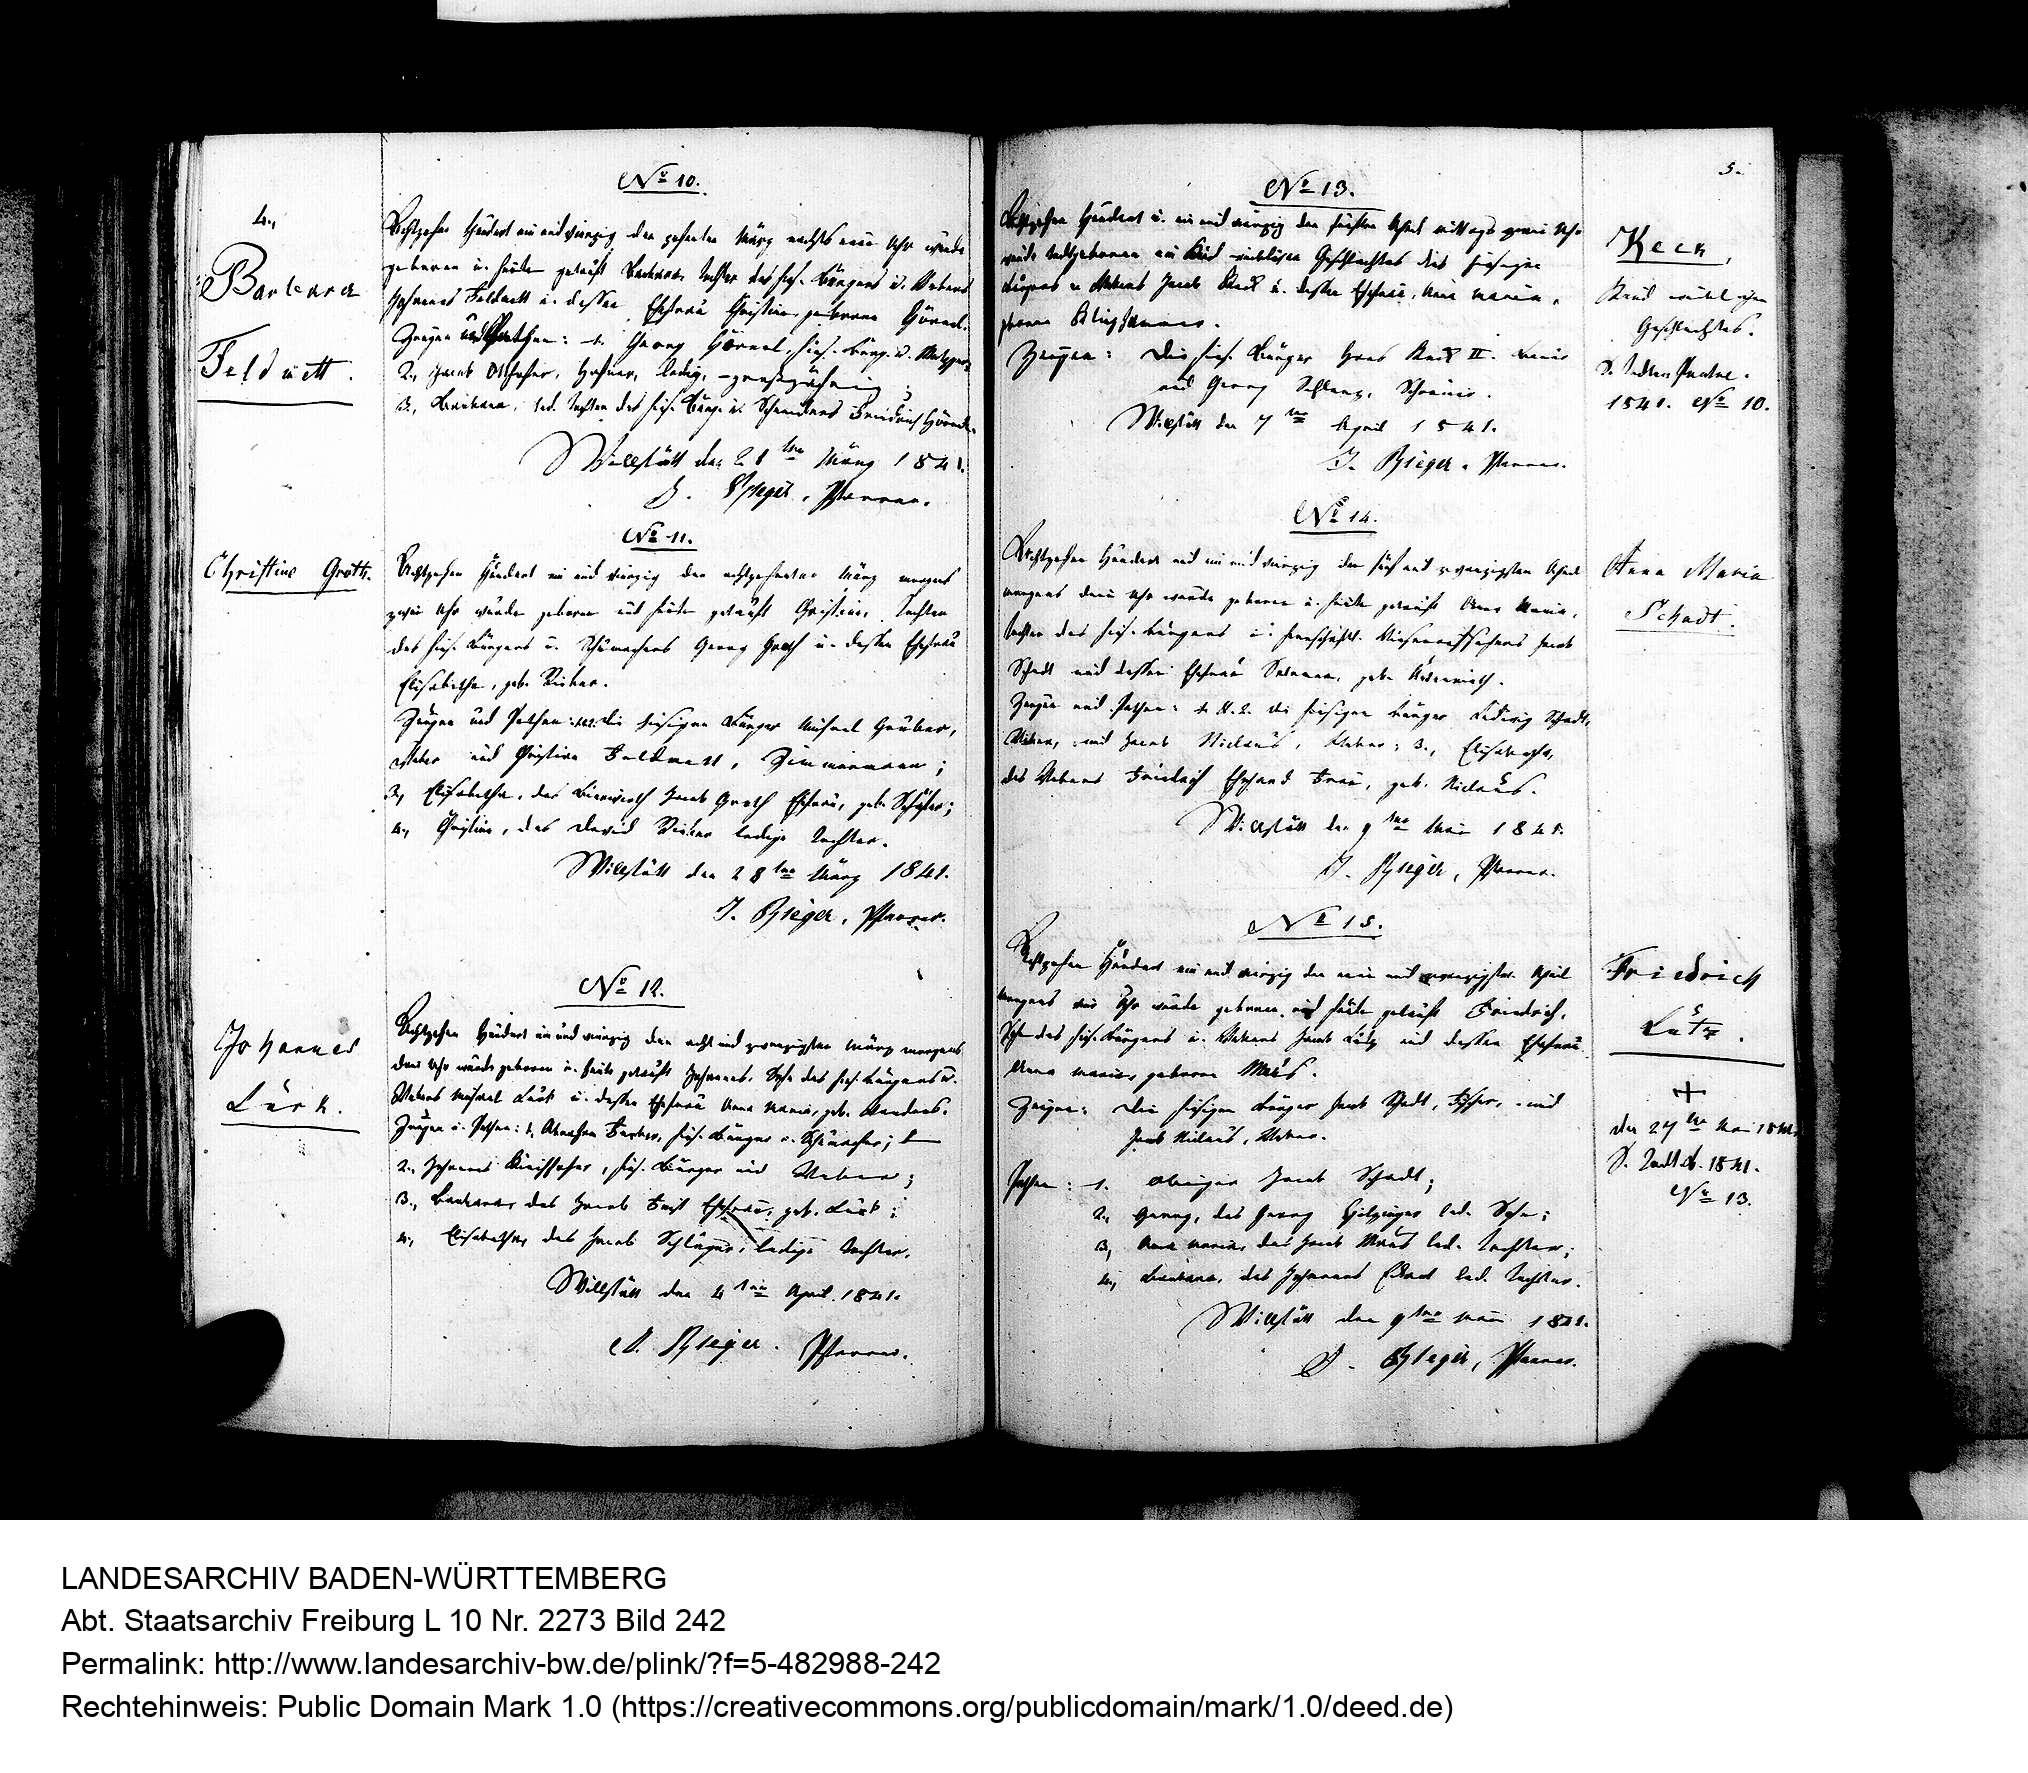 4.,
Barbara
Feldwett.
No 10.
Achtzehn Hundert ein und vierzig den zehnten März nachts neun Uhr wurde
geboren u. heute getauft Barbara, Tochter des hies. Bürgers u. Webers
Johannes Feldwett u. dessen Ehefrau Christine, geborene Hörnel.
Zeugen und Pathen: 1. Georg Hörnel, hies. Bürg. u. Metzger,
2., Jacob, Hafner, ledig,
3., Barbara, led. Tochter des hies. Bürg. u. Schneiders Friedrich
Willstätt den 21ten März 1841.
J. Rieger, Pfarrer.
Christine Groth.
No 11.
Achtzehn Hundert ein und vierzig den achtzehnten März morgens
zwei Uhr wurde geboren und heute getauft Christine, Tochter
des hies. Bürgers u. Schumachers Georg Groth u. dessen Ehefrau
Elisabetha, geb.
Zeugen und Pathen: 1. u. 2. die hiesigen Bürger Michael Gruber,
Weber und Christian Feldwett, Zimmermann;
3., Elisabetha, des Bierwirth Jacob Groth Ehefrau, geb. Schäfer;
4., Christine, des David ledige Tochter.
Willstätt den 28ten März 1841.
J. Rieger, Pfarrer.
Johannes
Lürk.
No 12.
Achtzehn Hundert ein und vierzig den acht und zwanzigsten März morgens
drei Uhr wurde geboren u. heute getauft Johannes, Sohn des hies. Bürgers u.
Webers Michael Lürk u. dessen Ehefrau Anna Maria, geb.
Zeugen u. Pathen: 1, Abraham, hies. Bürger u. Schumacher;
2., Johannes, hies. Bürger und Weber;
3., Barbara, des Jacob Ehefrau, geb. Lürk;
4., Elisabetha, des Jacob Schläger, ledige Tochter.
Willstätt den 4ten April 1841.
J. Rieger. Pfarrer.
5.
No 13.
Achtzehn Hundert u. ein und vierzig den fünften April mittags zwei Uhr
wurde todtgeboren ein Kind weiblichen Geschlechtes des hiesigen
Bürgers u. Webers Jacob Keck u. dessen Ehefrau, Anna Maria,
geborne
Zeugen: Die hies. Bürger Hans Keck II.
und Georg, Schreiner.
Willstätt den 7ten April 1841.
J. Rieger, Pfarrer.
Keck,
Kind weiblichen
Geschlechtes.
S. Todten
1841. No 10.
No 14.
Achtzehn Hundert und ein und vierzig den fünf und zwanzigsten April
morgens drei Uhr wurde geboren u. heute getauft Anna Maria,
Tochter des hies. Bürgers u. herrschaftl. Jacob
Schadt und dessen Ehefrau Salomea, geb.
Zeugen und Pathen: 1. u. 2. die hiesigen Bürger Ludwig Schadt,
Weber, und Jacob Niclaus, Weber; 3., Elisabetha,
des Webers Friedrich Ehrhard Frau, geb. Niclaus.
Willstätt den 9ten Mai 1841.
J. Rieger, Pfarrer.
Anna Maria
Schadt.
No 15.
Achtzehn Hundert ein und vierzig den neun und zwanzigsten April
morgens ein Uhr wurde geboren und heute getauft Friedrich,
Sohn des hies. Bürgers u. Webers Jacob Lutz und dessen Ehefrau
Anna Maria, geborne
Zeugen: Die hiesigen Bürger Jacob Schadt, Fischer, und
Jacob Niclaus, Weber.
Pathen: 1. obiger Jacob Schadt;
2., Georg, des Georg led. Sohn;
3, Anna Maria, des Jacob led. Tochter;
4., Barbara, des Johannes led. Tochter.
Willstätt den 9ten Mai 1841.
J. Rieger, Pfarrer.
Friedrich
Lutz.
+
den 27ten Mai 1841.
S. Todt. b. 1841.
No 13.
LANDESARCHIV BADEN-WÜRTTEMBERG
Abt. Staatsarchiv Freiburg L 10 Nr. 2273 Bild 242
Permalink: http://www.landesarchiv-bw.de/plink/?f=5-482988-242
Rechtehinweis: Public Domain Mark 1.0 (https://creativecommons.org/publicdomain/mark/1.0/deed.de)